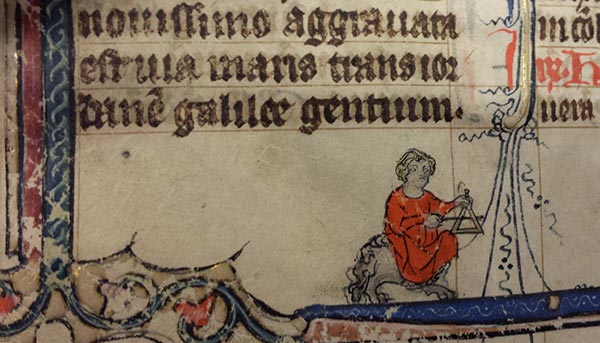 nouissimo aggrauata
est uia maris trans ior
danē galilee gentium.
uera